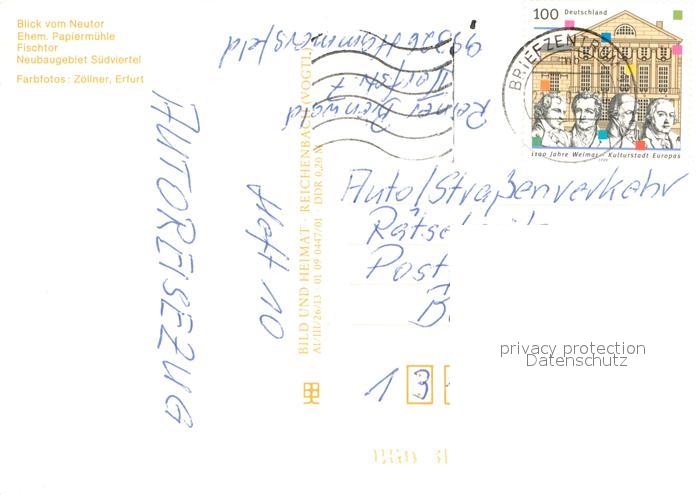 Blick vom Neutor
Ehem. Papiermühle
Fischtor
Neubaugebiet Südviertel
Farbfotos: Zöllner, Erfurt
AUTOREISEZUG
Heft 10
BILD UND HEIMAT · REICHENBACH (VOGTL)
A1/III/26/13 01 09 0447/01 DDR 0,20 M
Rainer
99326
100 Deutschland
BRIEFZENTRUM
1100 Jahre Weimar – Kulturstadt Europas
Auto/Straßenverkehr
Rätse
Post
B
13
privacy protection
Datenschutz